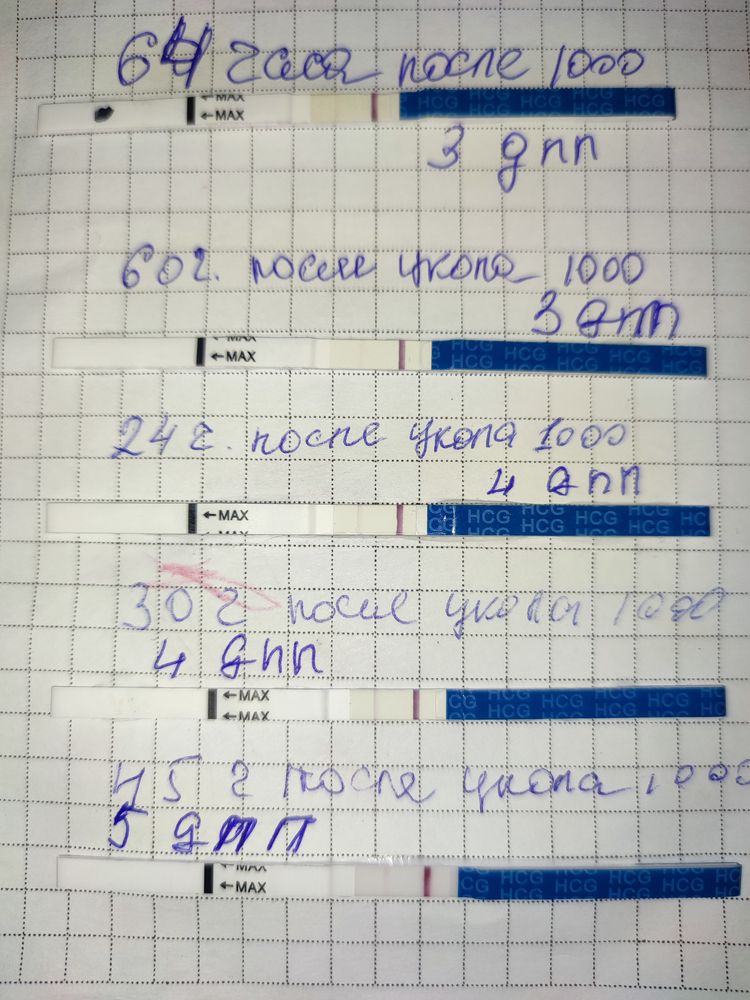 64 часа после 1000
←MAX
←MAX
HCG HCG HCG HCG
HCG HCG HCG HCG
3 дпп
60ч. после укола 1000
3 дпп
MAX
←MAX
HCG HCG HCG
CG HCG HCG HCG HCG
24 ч. после укола 1000
4 дпп
←MAX
HCG HCG HCG HC
HCG HCG HCG
30 ч после укола 1000
4 дпп
←MAX
←MAX
HCG HCG HCG
HCG HCG HCG
45 ч после укола 1000
5 дпп
MAX
←MAX
HCG HCG HCG
CG HCG HCG HCG HCG